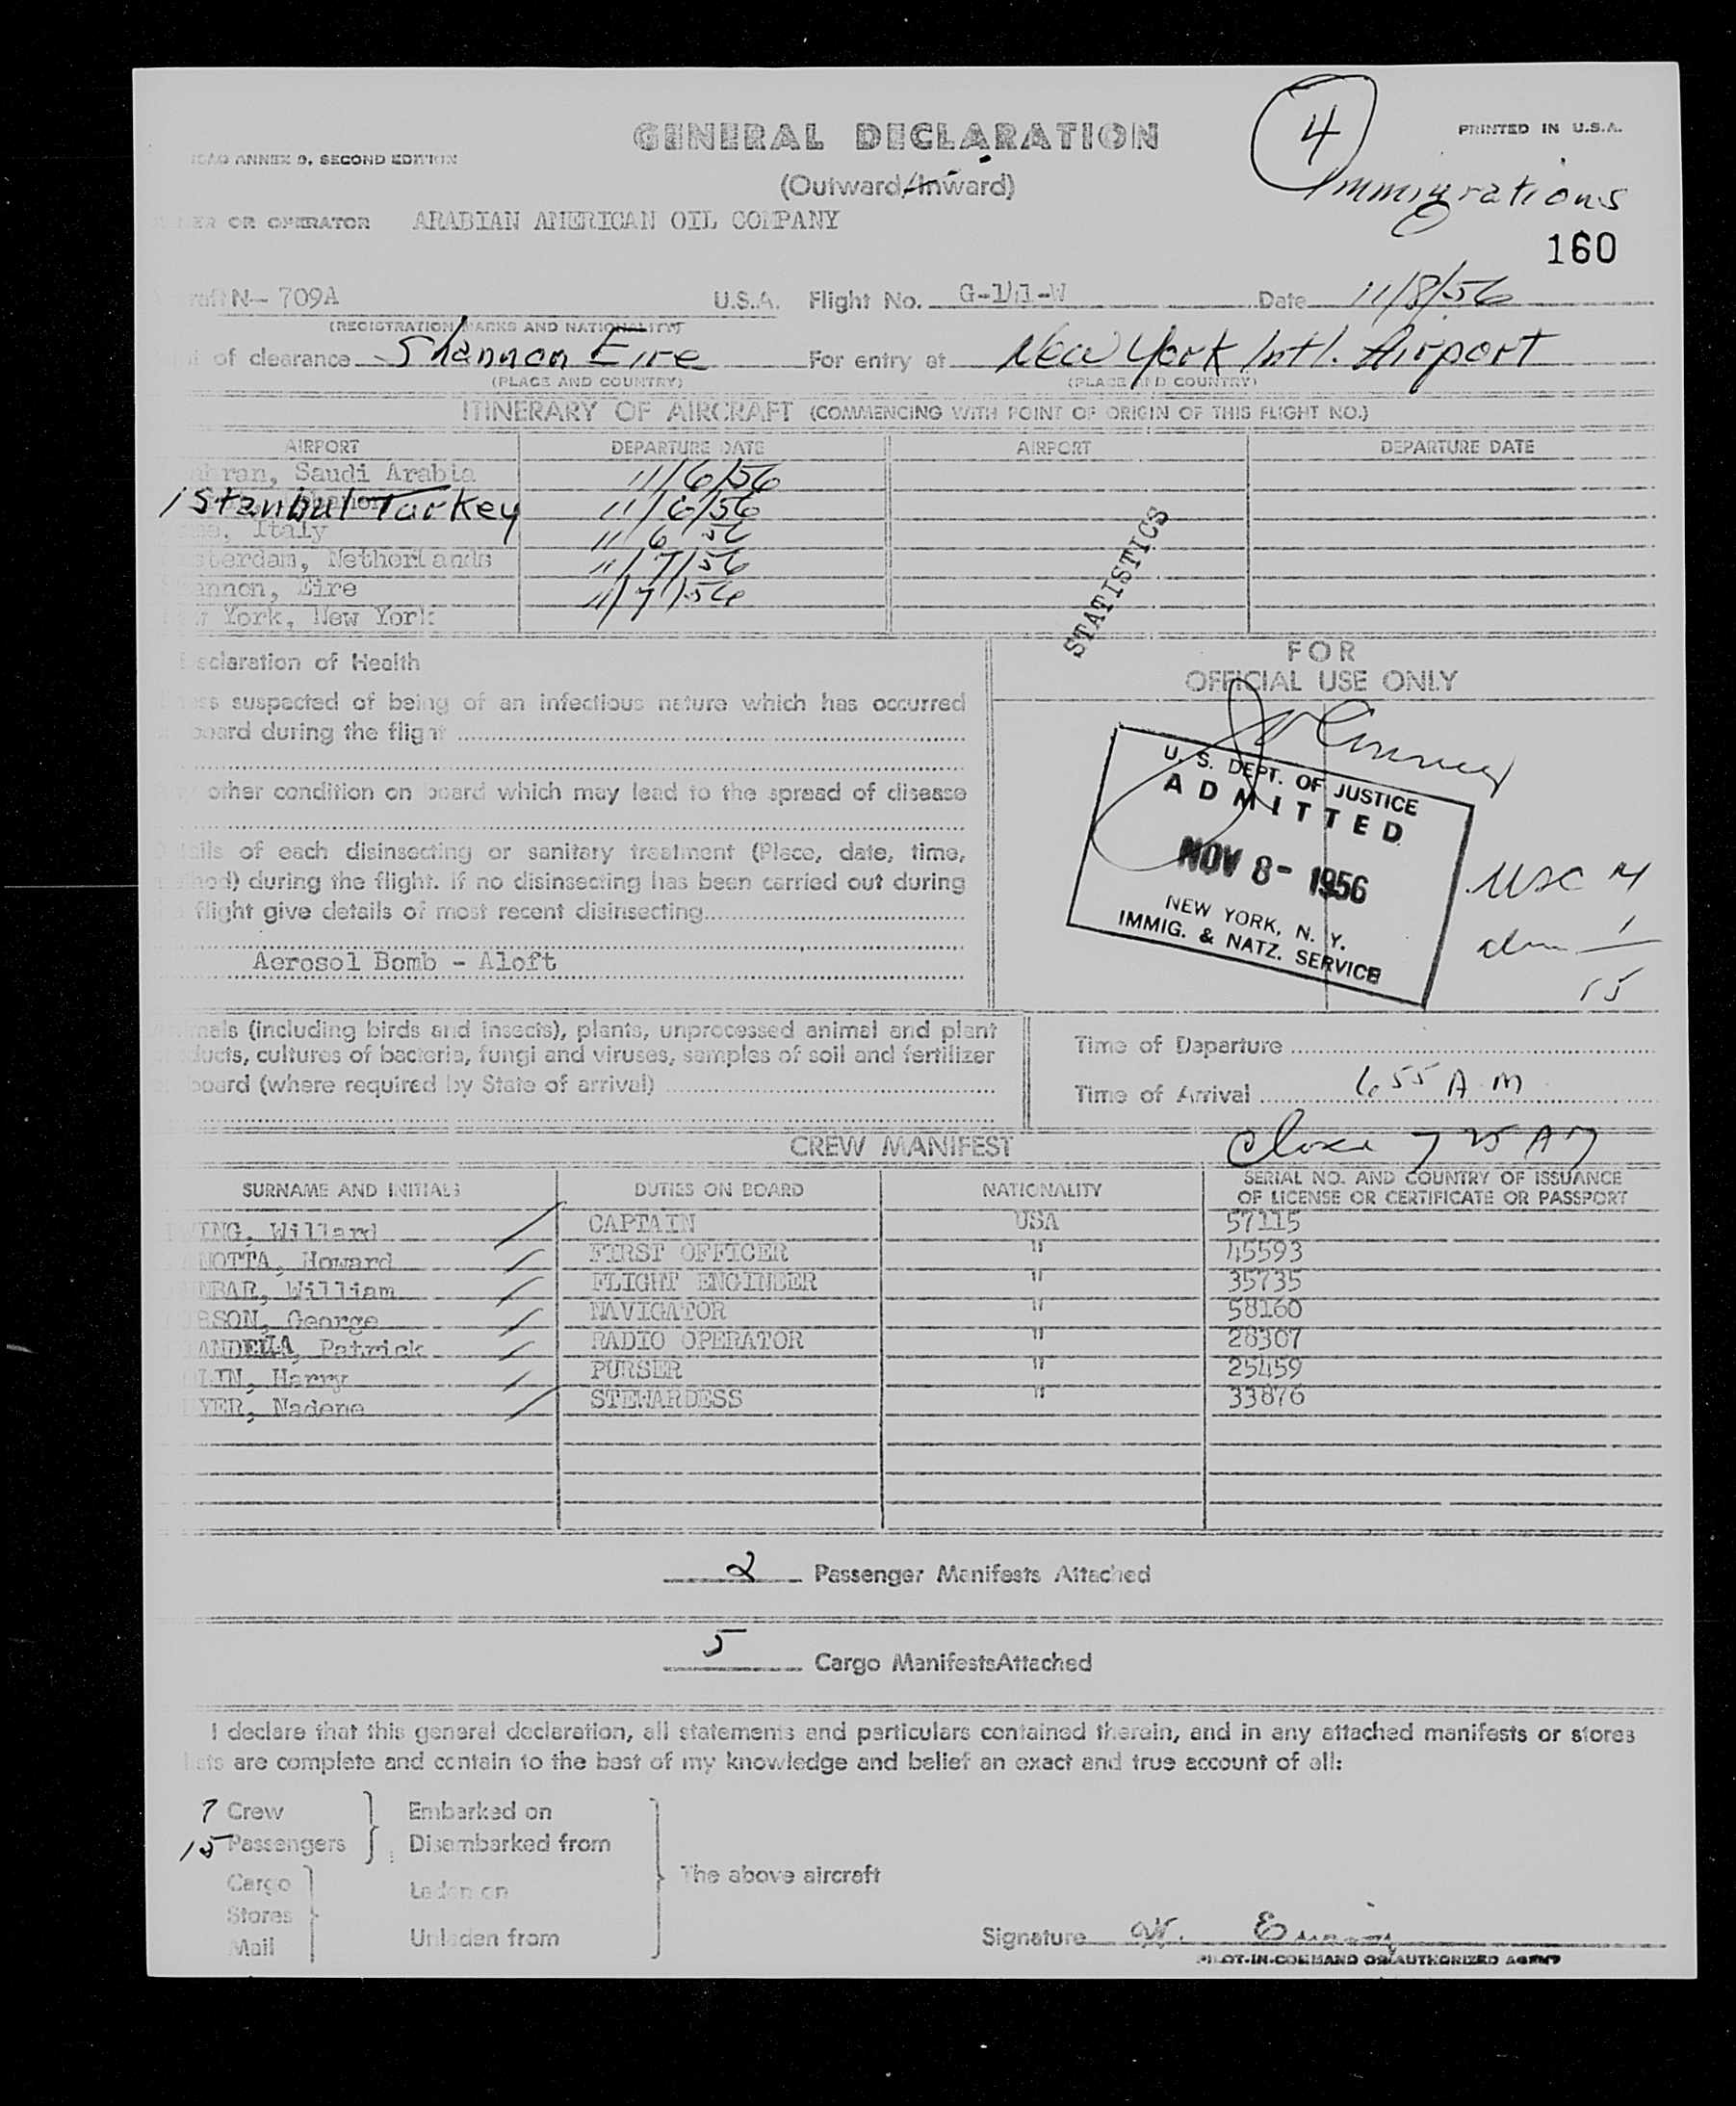 GENERAL DECLARATION
4
PRINTED IN U.S.A.
ICAO ANNEX 9, SECOND EDITION
(Outward/Inward)
Immigrations
OR OPERATOR ARABIAN AMERICAN OIL COMPANY
160
N- 709A U.S.A. Flight No. Date 11/8/56
(REGISTRATION MARKS AND NATIONALITY)
of clearance Shannon Eire For entry at New York Intl. Airport
(PLACE AND COUNTRY) (PLACE AND COUNTRY)
ITINERARY OF AIRCRAFT (COMMENCING WITH POINT OF ORIGIN OF THIS FLIGHT NO.)
AIRPORT DEPARTURE DATE AIRPORT DEPARTURE DATE
hran, Saudi Arabia 11/6/56
Istanbul Turkey 11/6/56
Italy 11/6/56
sterdam, Netherlands 11/7/56
annon, Eire 11/7/56
York, New York
STATISTICS
claration of Health
suspected of being of an infectious nature which has occurred
board during the flight
other condition on board which may lead to the spread of disease
of each disinsecting or sanitary treatment (Place, date, time,
hod) during the flight. If no disinsecting has been carried out during
flight give details of most recent disinsecting
Aerosol Bomb - Aloft
FOR
OFFICIAL USE ONLY
U. S. DEPT. OF JUSTICE
ADMITTED
NOV 8- 1956
NEW YORK, N. Y.
IMMIG. & NATZ. SERVICE
USC 14
1
15
mals (including birds and insects), plants, unprocessed animal and plant
ducts, cultures of bacteria, fungi and viruses, samples of soil and fertilizer
board (where required by State of arrival)
Time of Departure
Time of Arrival 655 A M
725 AM
CREW MANIFEST
SURNAME AND INITIALS DUTIES ON BOARD NATIONALITY SERIAL NO. AND COUNTRY OF ISSUANCE
OF LICENSE OR CERTIFICATE OR PASSPORT
ING, Willard CAPTAIN USA 57115
NOTTA, Howard FIRST OFFICER " 45593
BAR, William FLIGHT ENGINEER " 35735
RSON, George NAVIGATOR " 58160
ANDELLA, Patrick RADIO OPERATOR " 28307
LIN, Harry PURSER " 25459
YER, Nadene STEWARDESS " 33876
2 Passenger Manifests Attached
5 Cargo ManifestsAttached
I declare that this general declaration, all statements and particulars contained therein, and in any attached manifests or stores
lists are complete and contain to the best of my knowledge and belief an exact and true account of all:
7 Crew Embarked on
15 Passengers Disembarked from
The above aircraft
Cargo Laden on
Stores
Mail Unladen from
Signature W. Ewing
PILOT-IN-COMMAND OR AUTHORIZED AGENT